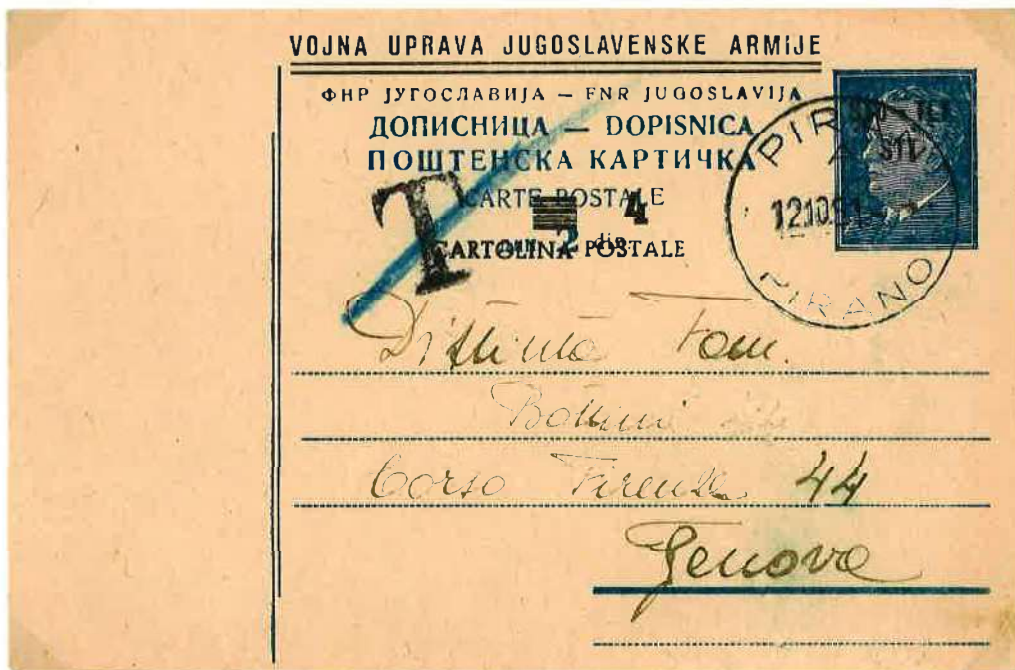 VOJNA UPRAVA JUGOSLAVENSKE ARMIJE
ФНР ЈУГОСЛАВИЈА — FNR JUGOSLAVIJA
ДОПИСНИЦА — DOPISNICA
ПОШТЕНСКА КАРТИЧКА
CARTE POSTALE
T
4
2 din
CARTOLINA POSTALE
STT
PIRAN
A
12.10.51
PIRANO
Distinta Fam.
Bottini
Corso Firenze 44
Genova